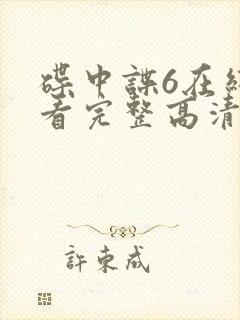 碟中諜6在線
看完整高清
許東成